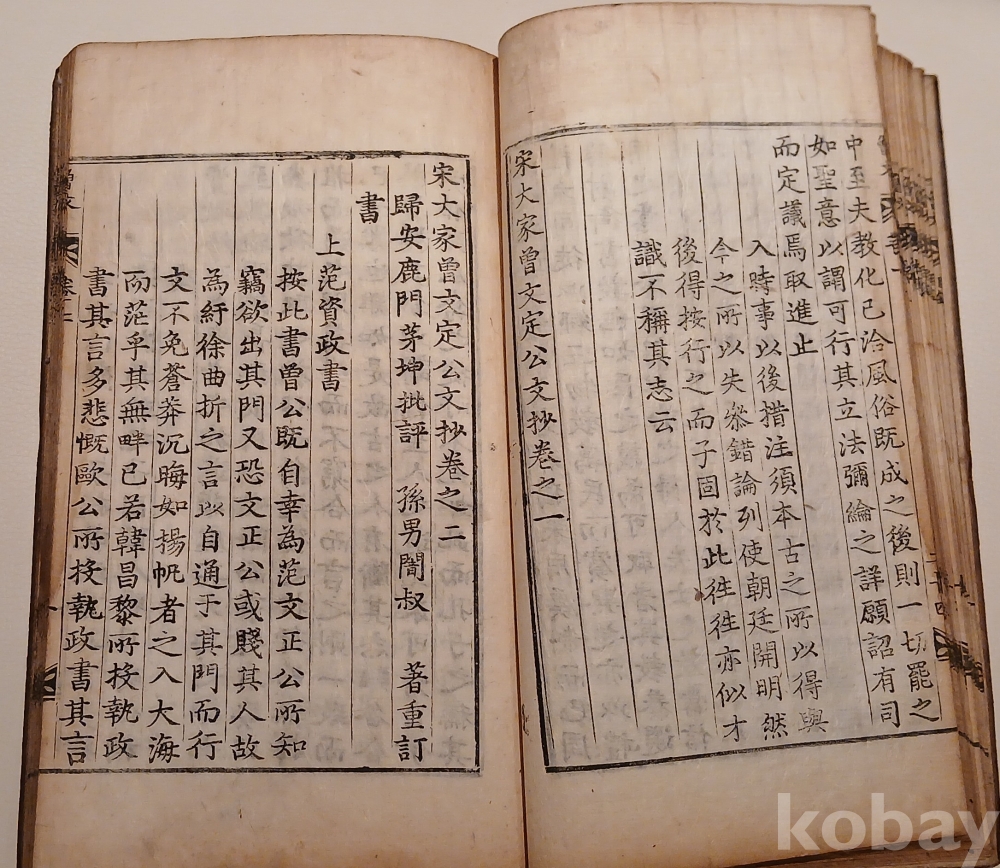 中至夫教化已洽風俗既成之後則一切罷之
如聖意以謂可行其立法彌綸之詳願詔有司
而定議焉取進止
入時事以後措注須本古之所以得與
今之所以失參錯論列使朝廷開明然
後得按行之而子固於此往往亦似才
識不稱其志云
宋大家曾文定公文抄卷之一
宋大家曾文定公文抄卷之二
歸安鹿門茅坤批評 孫男闇叔 著重訂
書
上范資政書
按此書曾公既自幸為范文正公所知
竊欲出其門又恐文正公或賤其人故
為紆徐曲折之言以自通于其門而行
文不免蒼莽沉晦如揚帆者之入大海
而茫乎其無畔已若韓昌黎所投執政
書其言多悲慨歐公所投執政書其言
kobay